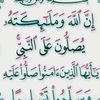 إِنَّ اللَّهَ وَمَلَٰٓئِكَتَهُ
يُصَلُّونَ عَلَى النَّبِيِّ
يَٰٓأَيُّهَا الَّذِينَ ءَامَنُوا صَلُّوا عَلَيْهِ